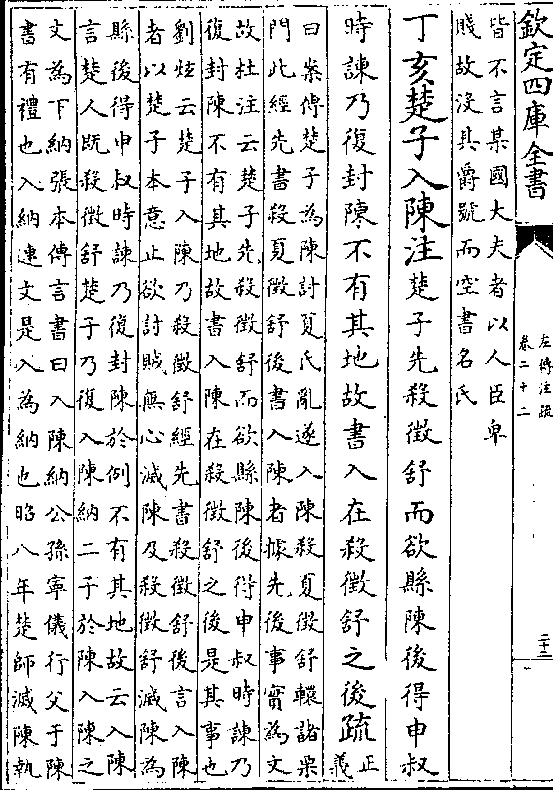 欽定四庫全書
左傳注疏
卷二十二
二十三
皆不言某國大夫者以人臣卑
賤故沒其爵號而空書名氏
丁亥楚子入陳注楚子先殺徵舒而欲縣陳後得申叔
時諫乃復封陳不有其地故書入在殺徵舒之後疏正義
曰案傳楚子為陳討夏氏亂遂入陳殺夏徵舒轘諸栗
門此經先書殺夏徵舒後書入陳者據先後事實為文
故杜注云楚子先殺徵舒而欲縣陳後得申叔時諫乃
復封陳不有其地故書入陳在殺徵舒之後是其事也
劉炫云楚子入陳乃殺徵舒經先書殺徵舒後言入陳
者以楚子本意止欲討賊無心滅陳及殺徵舒滅陳為
縣後得申叔時諫乃復封陳於例不有其地故云入陳
言楚人既殺徵舒楚子乃復入陳納二子於陳入陳之
文為下納張本傳言書曰入陳納公孫寧儀行父于陳
書有禮也入納連文是入為納也昭八年楚師滅陳執